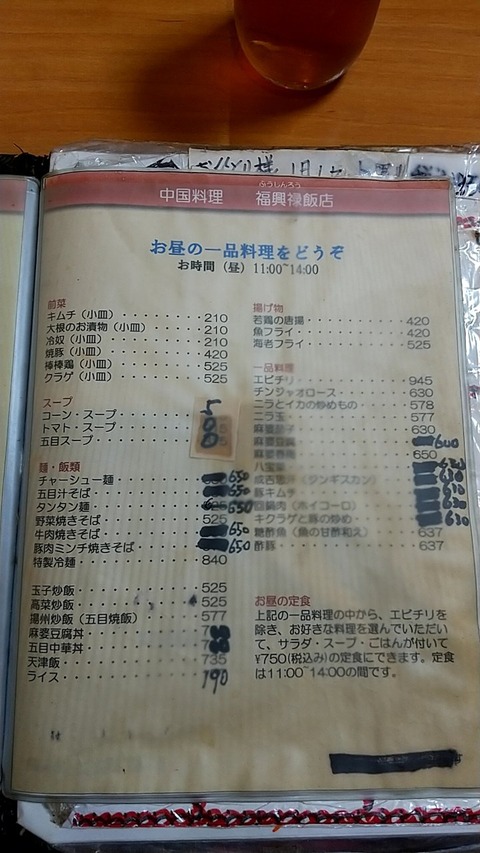 中国料理 福興禄飯店
ふうしんろう
お昼の一品料理をどうぞ
お時間（昼）11:00~14:00
前菜
キムチ（小皿）・・・・・・・210
大根のお漬物（小皿）・・・・210
冷奴（小皿）・・・・・・・・210
焼豚（小皿）・・・・・・・・420
棒棒鶏（小皿）・・・・・・・525
クラゲ（小皿）・・・・・・・525
スープ
コーン・スープ・・・・・・・500
トマト・スープ・・・・・・・
五目スープ・・・・・・・・・
麺・飯類
チャーシュー麺・・・・・・・650
五目汁そば・・・・・・・・・650
タンタン麺・・・・・・・・・650
野菜焼きそば・・・・・・・・525
牛肉焼きそば・・・・・・・・650
豚肉ミンチ焼きそば・・・・・650
特製冷麺・・・・・・・・・・840
玉子炒飯・・・・・・・・・・525
高菜炒飯・・・・・・・・・・525
揚州炒飯（五目焼飯）・・・・577
麻婆豆腐丼・・・・・・・・・
五目中華丼・・・・・・・・・
天津飯・・・・・・・・・・・735
ライス・・・・・・・・・・・190
揚げ物
若鶏の唐揚・・・・・・・・・420
魚フライ・・・・・・・・・・420
海老フライ・・・・・・・・・525
一品料理
エビチリ・・・・・・・・・・945
チンジャオロース・・・・・・630
ニラとイカの炒めもの・・・・578
ニラ玉・・・・・・・・・・・577
麻婆茄子・・・・・・・・・・630
麻婆豆腐・・・・・・・・・・600
麻婆春雨・・・・・・・・・・650
八宝菜・・・・・・・・・・・630
成吉思汗（ジンギスカン）・・630
豚キムチ・・・・・・・・・・610
回鍋肉（ホイコーロ）・・・・630
キクラゲと豚の炒め・・・・・630
糖酢魚（魚の甘酢和え）・・・637
酢豚・・・・・・・・・・・・637
お昼の定食
上記の一品料理の中から、エビチリを
除き、お好きな料理を選んでいただい
て、サラダ・スープ・ごはんが付いて
¥750(税込み)の定食にできます。定食
は11:00~14:00の間です。